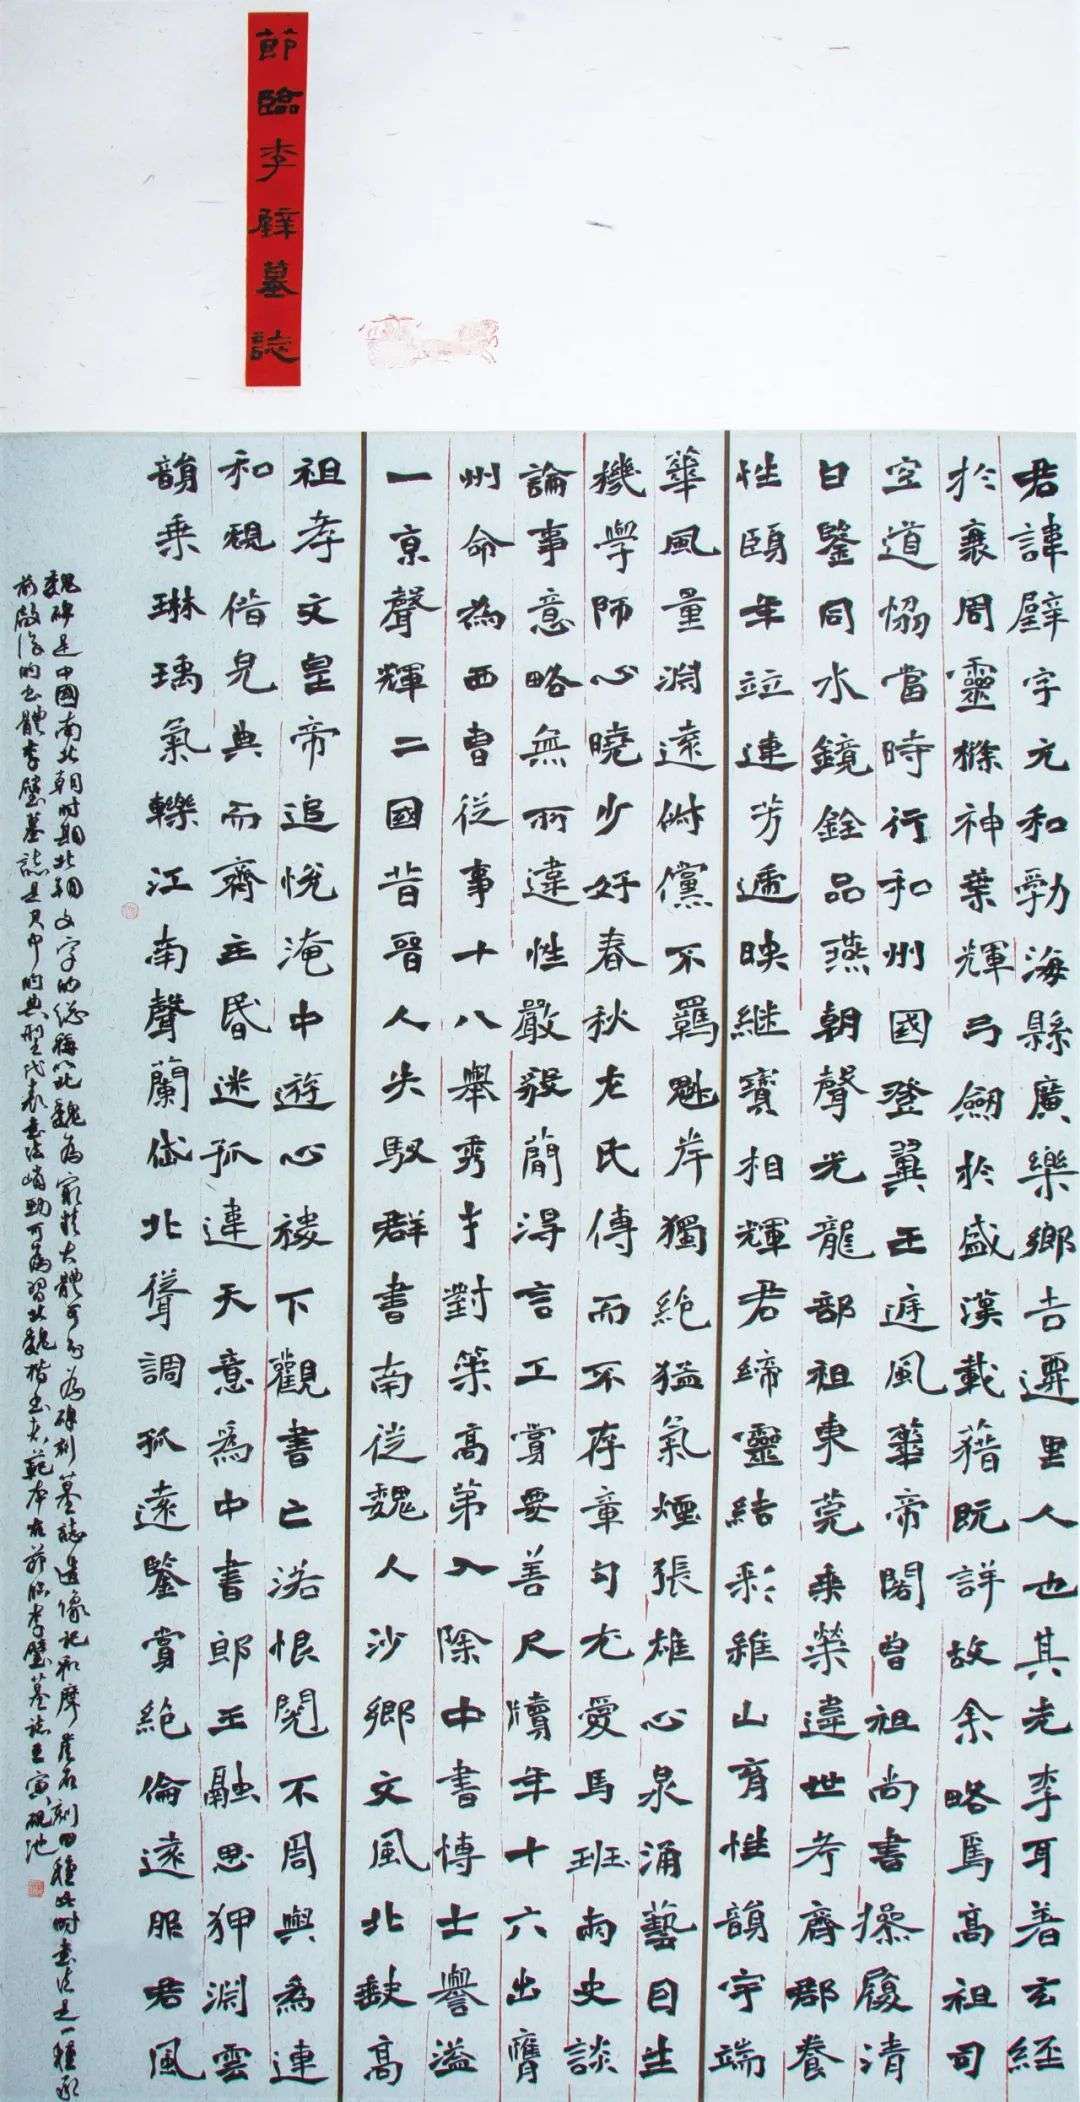 節臨李璧墓誌
君諱璧字元和勃海縣廣樂鄉吉遷里人也其先李耳著玄經
於衰周靈㯱神葉輝弓劔於盛漢載藉既詳故余略焉高祖司
空道恊當時行和州國登翼王庭風華帝閣曾祖尚書操履清
白鑒同水鏡銓品燕朝聲光龍部祖東莞乘榮違世考齊郡養
性頤年竝連芳遞映継寶相輝君締靈結彩維山育性韻宇端
華風量淵遠倜儻不羈魁岸獨絶猛氣煙張雄心泉涌藝目生
機學師心曉少好春秋左氏傳而不存章句尤愛馬班兩史談
論事意略無所違性嚴毅簡得言工賞要善尺牘年十六出膺
州命為西曹從事十八舉秀才對策高第入除中書博士譽溢
一京聲輝二國昔晉人失馭群書南從魏人沙鄉文風北缺高
祖孝文皇帝追悅淹中遊心稷下觀書亡落恨閱不周與為連
和規借完典而齊主昏迷孤違天意為中書郎王融思狎淵雲
韻乘琳瑀氣轢江南聲蘭岱北聳調孤遠鑒賞絶倫遠服君風
魏碑是中國南北朝時期北朝文字的總稱以北魏為最精大體可分為碑刻墓誌造像記和摩崖石刻四種此時書法是一種承
前啟後的書體李璧墓誌是其中的典型代表書法峭勁可為習北魏楷書之範本節臨李璧墓誌壬寅硯池